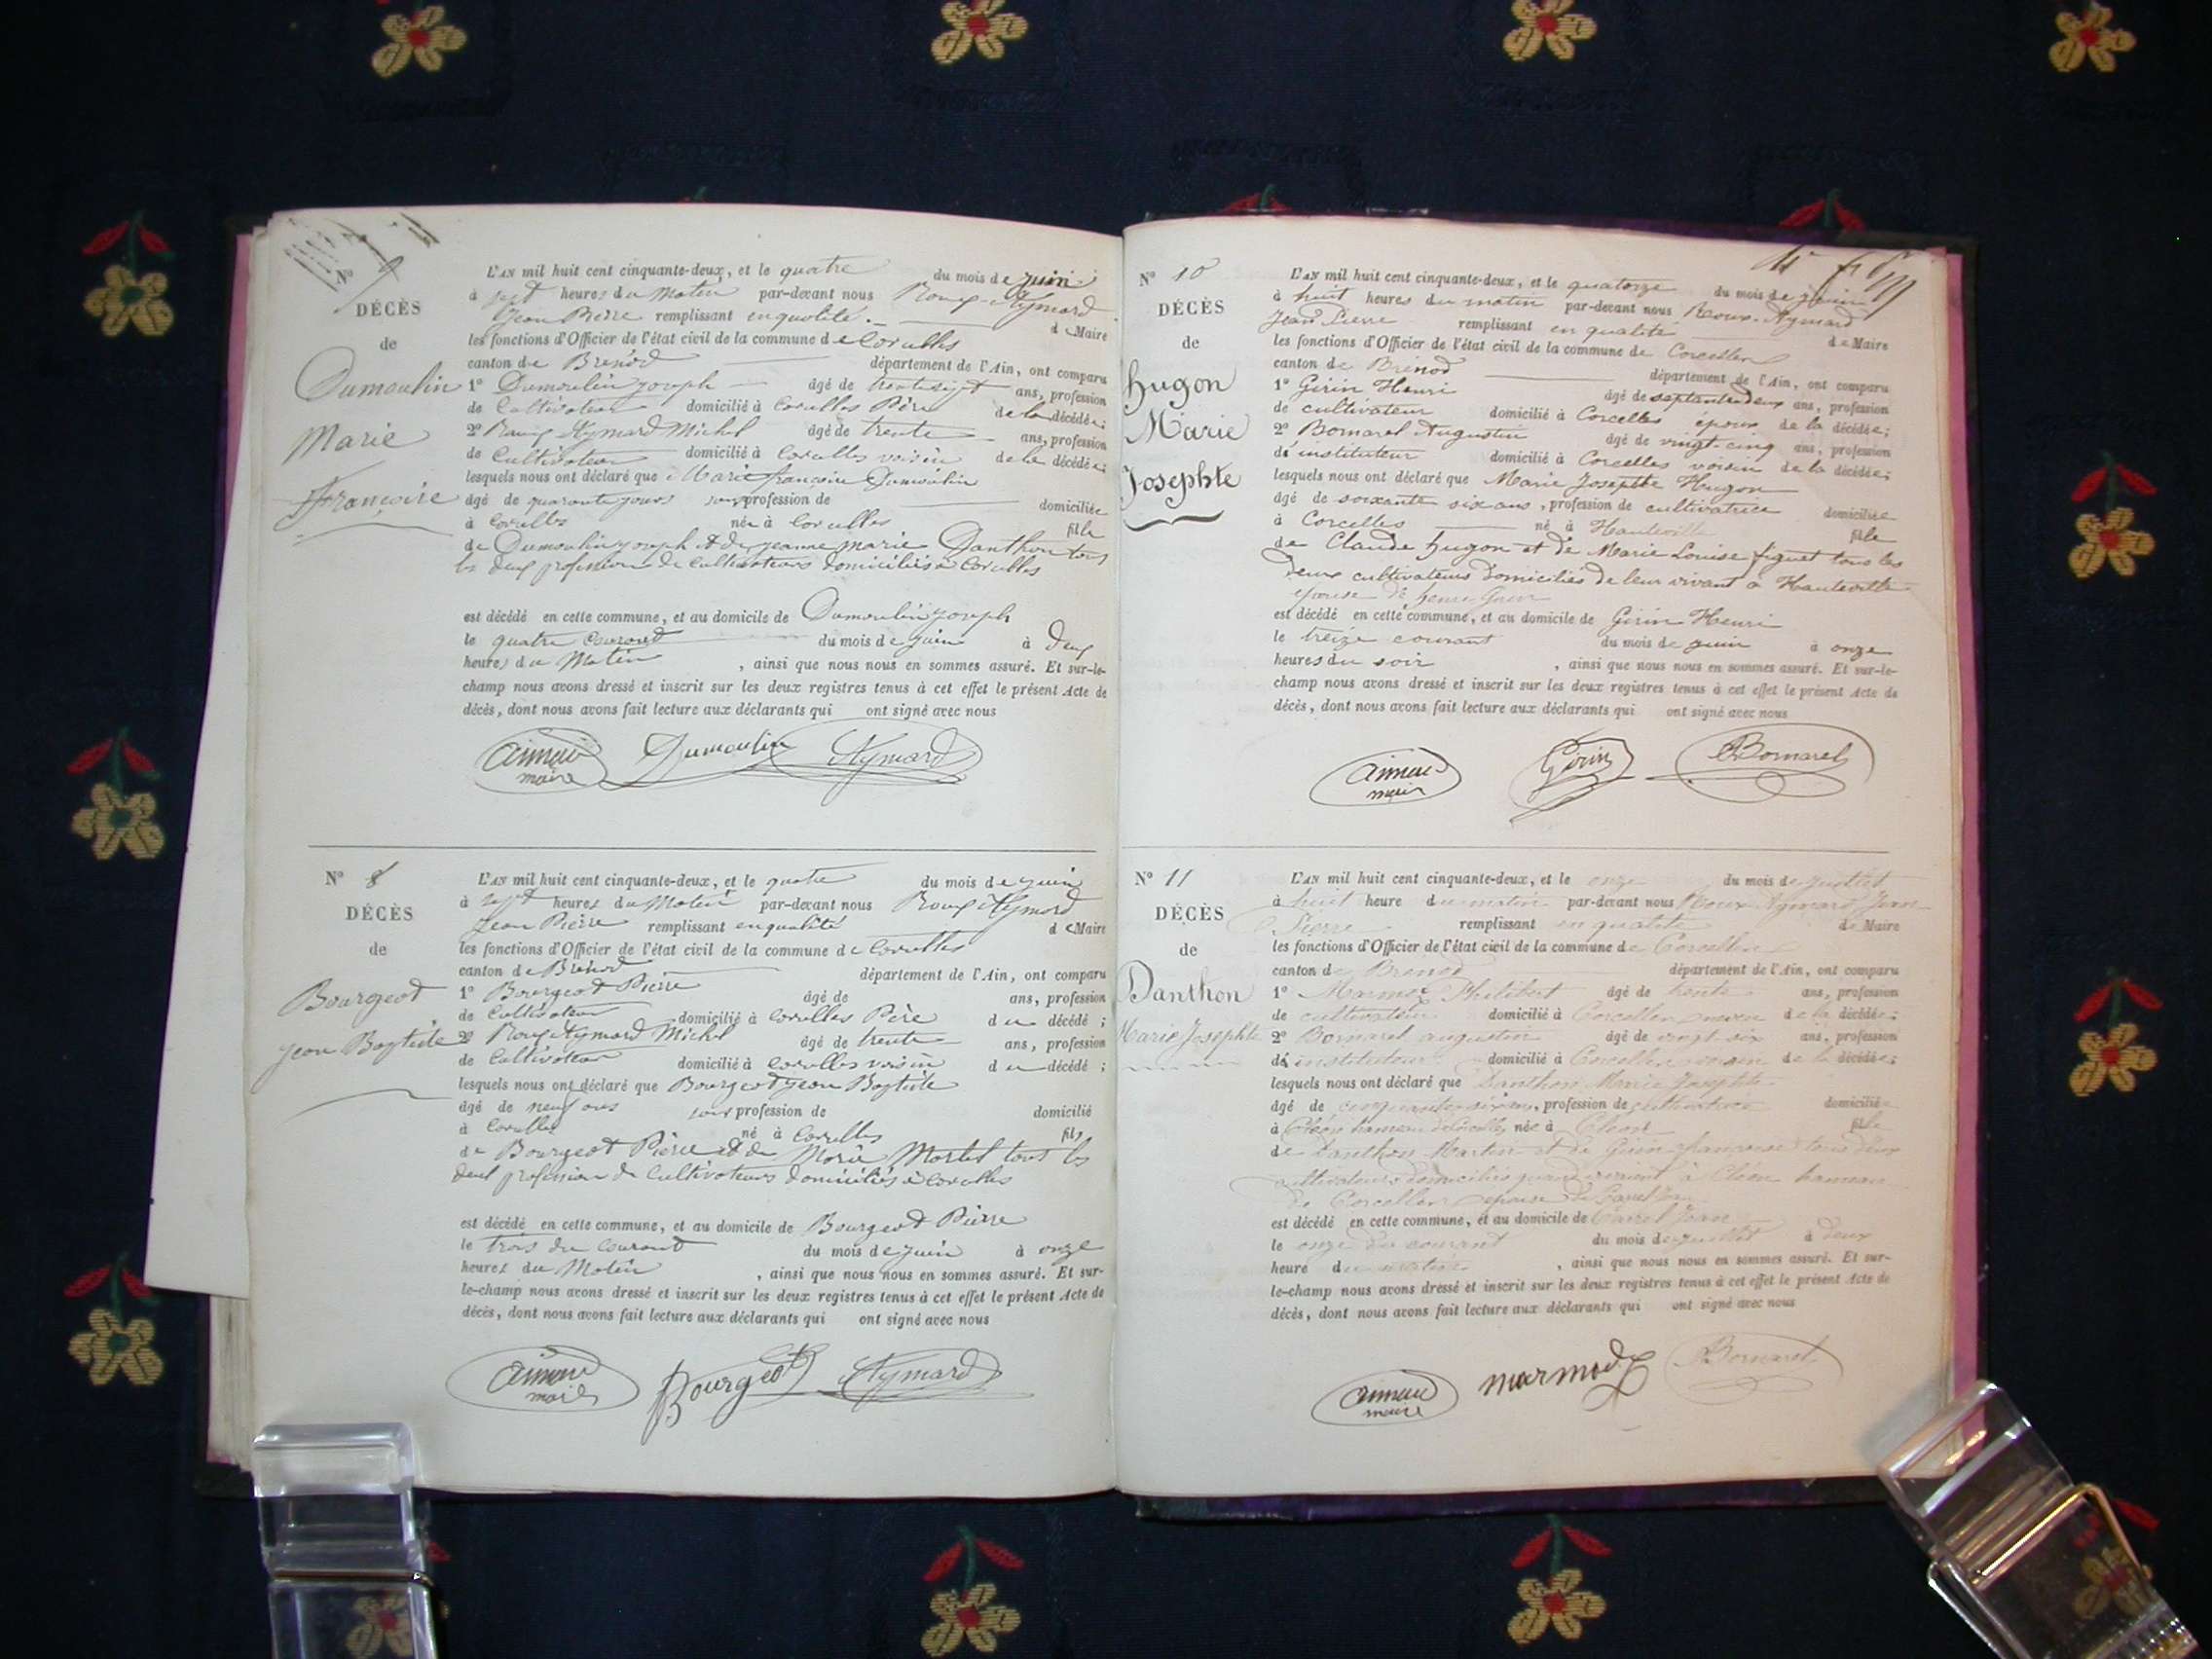 N° 9
DÉCÈS
de
Dumoulin
Marie
Françoise
L'AN mil huit cent cinquante-deux, et le quatre du mois de juin
à sept heures du Matin par-devant nous Roux-Aymard
Jean Pierre remplissant en qualité de Maire
les fonctions d'Officier de l'état civil de la commune de Corcelles
canton de Brénod département de l'Ain, ont comparu
1° Dumoulin joseph âgé de trente sept ans, profession
de Cultivateur domicilié à Corcelles Père de la décédée;
2° Roux Aymard Michel âgé de trente ans, profession
de Cultivateur domicilié à Corcelles voisin de la décédée;
lesquels nous ont déclaré que Marie françoise Dumoulin
âgé de quarante jours sans profession de domiciliée
à Corcelles née à Corcelles fille
de Dumoulin joseph et de jeanne marie Danthon tous
les deux profession de Cultivateurs domiciliés à Corcelles
est décédé en cette commune, et au domicile de Dumoulin joseph
le quatre courant du mois de juin à Deux
heures du Matin, ainsi que nous nous en sommes assuré. Et sur-le-
champ nous avons dressé et inscrit sur les deux registres tenus à cet effet le présent Acte de
décès, dont nous avons fait lecture aux déclarants qui ont signé avec nous
maire Dumoulin Aymard
N° 8
DÉCÈS
de
Bourgeot
jean Baptiste
L'AN mil huit cent cinquante-deux, et le quatre du mois de juin
à sept heures du Matin par-devant nous Roux Aymard
Jean Pierre remplissant en qualité de Maire
les fonctions d'Officier de l'état civil de la commune de Corcelles
canton de Brénod département de l'Ain, ont comparu
1° Bourgeot Pierre âgé de ans, profession
de Cultivateur domicilié à Corcelles Père du décédé;
2° Roux Aymard Michel âgé de trente ans, profession
de Cultivateur domicilié à Corcelles voisin du décédé;
lesquels nous ont déclaré que Bourgeot jean Baptiste
âgé de neuf ans sans profession de domicilié
à Corcelles né à Corcelles fils
de Bourgeot Pierre et de Marie Martel tous les
deux profession de Cultivateurs domiciliés à Corcelles
est décédé en cette commune, et au domicile de Bourgeot Pierre
le trois du courant du mois de juin à onze
heures du Matin, ainsi que nous nous en sommes assuré. Et sur-
le-champ nous avons dressé et inscrit sur les deux registres tenus à cet effet le présent Acte de
décès, dont nous avons fait lecture aux déclarants qui ont signé avec nous
maire Bourgeot Aymard
N° 10
DÉCÈS
de
hugon
Marie
Josephte
L'AN mil huit cent cinquante-deux, et le quatorze du mois de juin
à huit heures du matin par-devant nous Roux-Aymard
Jean Pierre remplissant en qualité de Maire
les fonctions d'Officier de l'état civil de la commune de Corcelles
canton de Brénod département de l'Ain, ont comparu
1° Girin Henri âgé de septante deux ans, profession
de cultivateur domicilié à Corcelles époux de la décédée;
2° Bornarel Augustin âgé de vingt-cinq ans, profession
d'instituteur domicilié à Corcelles voisin de la décédée;
lesquels nous ont déclaré que Marie Josephte Hugon
âgé de soixante six ans, profession de cultivatrice domiciliée
à Corcelles né à Hauteville fille
de Claude hugon et de Marie Louise figuet tous les
deux cultivateurs domiciliés de leur vivant à Hauteville
épouse de henri Girin
est décédé en cette commune, et au domicile de Girin Henri
le treize courant du mois de juin à onze
heures du soir, ainsi que nous nous en sommes assuré. Et sur-le-
champ nous avons dressé et inscrit sur les deux registres tenus à cet effet le présent Acte de
décès, dont nous avons fait lecture aux déclarants qui ont signé avec nous
Girin Bornarel
N° 11
DÉCÈS
de
Danthon
Marie Josephte
L'AN mil huit cent cinquante-deux, et le onze du mois de juillet
à huit heure du matin par-devant nous Roux-Aymard Jean
Pierre remplissant en qualité de Maire
les fonctions d'Officier de l'état civil de la commune de Corcelles
canton de Brénod département de l'Ain, ont comparu
1° Marmod Philibert âgé de trente ans, profession
de cultivateur domicilié à Corcelles neveu de la décédée;
2° Bornarel augustin âgé de vingt-six ans, profession
d'instituteur domicilié à Corcelles voisin de la décédée;
lesquels nous ont déclaré que Danthon Marie Josephte
âgé de cinquante six ans, profession de cultivatrice domiciliée
à Cléon hameau de Corcelles née à Cléon fille
de Danthon Martin et de Girin françoise tous deux
cultivateurs domiciliés quand vivaient à Cléon hameau
de Corcelles épouse de
est décédé en cette commune, et au domicile de
le onze du courant du mois de juillet à deux
heure du matin, ainsi que nous nous en sommes assuré. Et sur-
le-champ nous avons dressé et inscrit sur les deux registres tenus à cet effet le présent Acte de
décès, dont nous avons fait lecture aux déclarants qui ont signé avec nous
maire marmod Bornarel